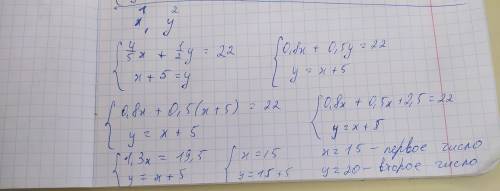 1 2
x, y
{ 4/5 x + 1/2 y = 22
x + 5 = y
{ 0,8x + 0,5y = 22
y = x + 5
{ 0,8x + 0,5(x + 5) = 22
y = x + 5
{ 0,8x + 0,5x + 2,5 = 22
y = x + 5
{ 1,3x = 19,5
y = x + 5
{ x = 15
y = 15 + 5
x = 15 – первое число
y = 20 – второе число